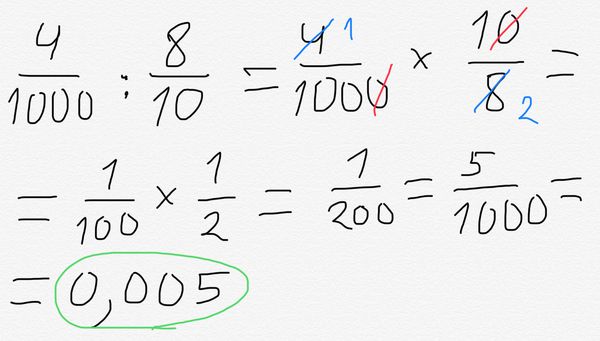 4/1000 : 8/10 = 4 1/1000 × 10/8 2 =
= 1/100 × 1/2 = 1/200 = 5/1000 =
= 0,005